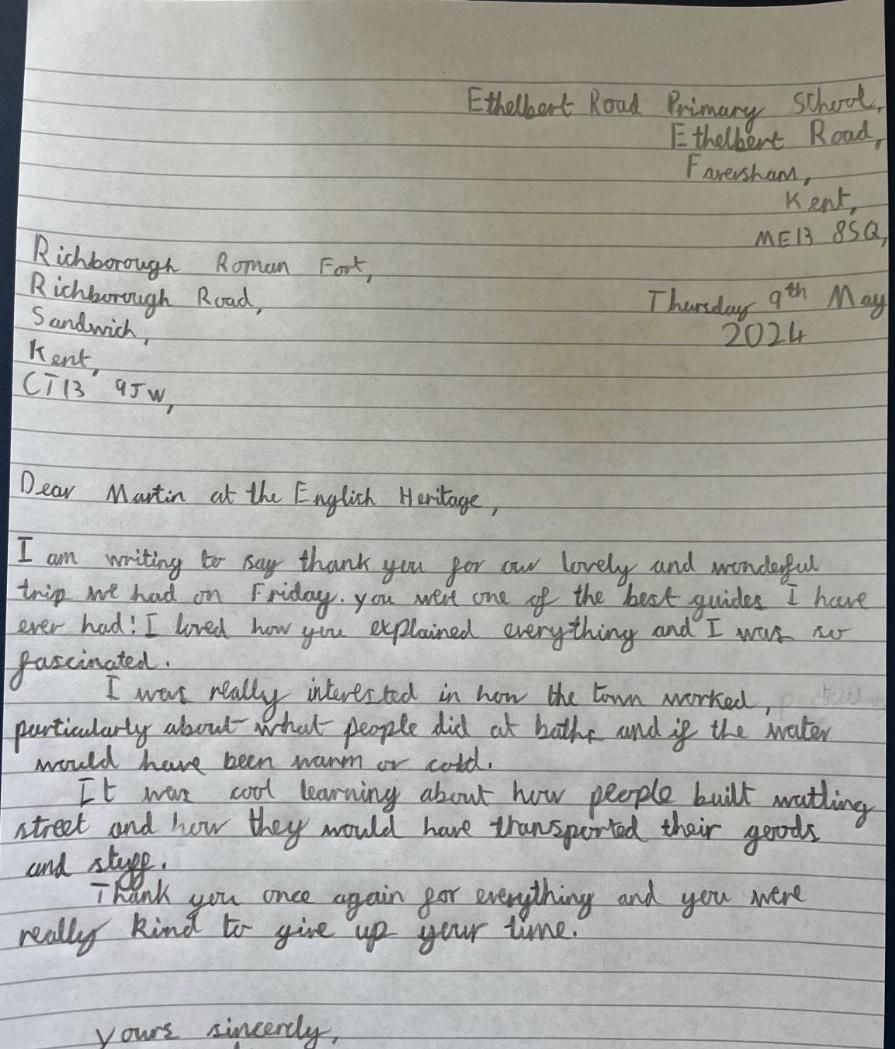 Ethelbert Road Primary School,
Ethelbert Road,
Faversham,
Kent,
ME13 8SQ,
Richborough Roman Fort,
Richborough Road,
Sandwich,
Kent,
CT13 9JW,
Thursday 9th May
2024
Dear Martin at the English Heritage,
I am writing to say thank you for our lovely and wonderful
trip we had on Friday. you were one of the best guides I have
ever had! I loved how you explained everything and I was so
fascinated.
I was really interested in how the town worked,
particularly about what people did at baths and if the water
would have been warm or cold.
It was cool learning about how people built watling
street and how they would have transported their goods
and stuff.
Thank you once again for everything and you were
really kind to give up your time.
yours sincerely,